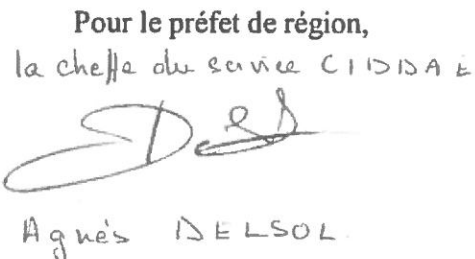 Pour le préfet de région,
la cheffe du service CIDDAE
Agnès DELSOL